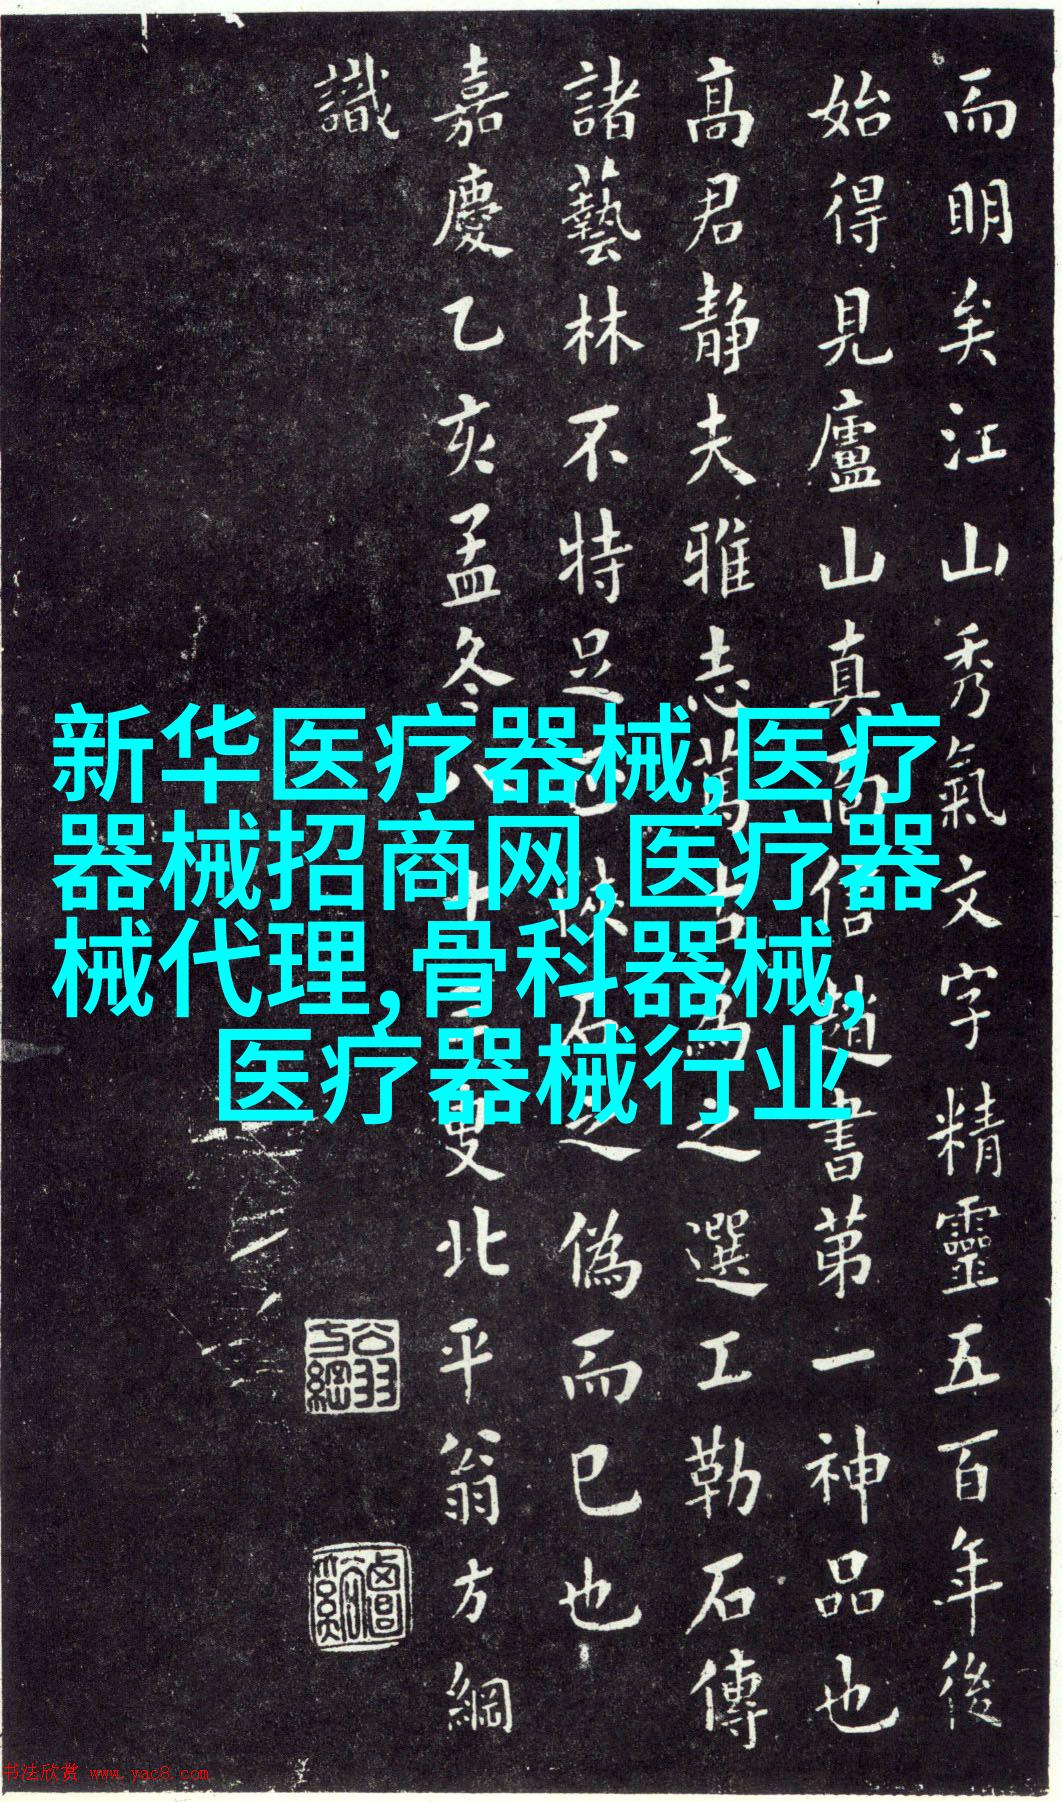 而明矣江山秀氣文字精靈五百年後
始得見廬山真面信趙書第一神品也
高君静夫雅志古為之選工勒石傳
諸藝林不特足陝石之偽而已也
嘉慶乙亥孟冬八十三叟北平翁方綱
識
翁方綱
新华医疗器械,医疗
器械招商网,医疗器
械代理,骨科器械,
医疗器械行业
书法欣赏 www.yac8.com